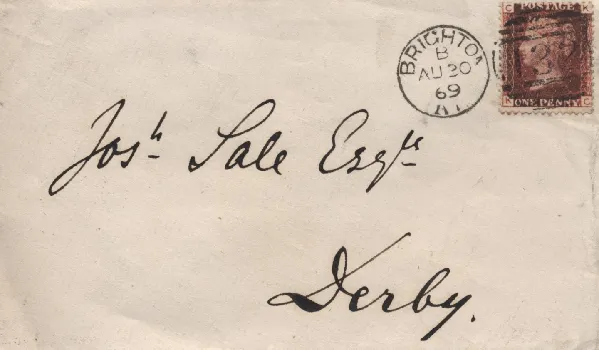 POSTAGE
C K
BRIGHTON
B
AU 20
69
K C
ONE PENNY
Josh Sale Esqre
Derby.